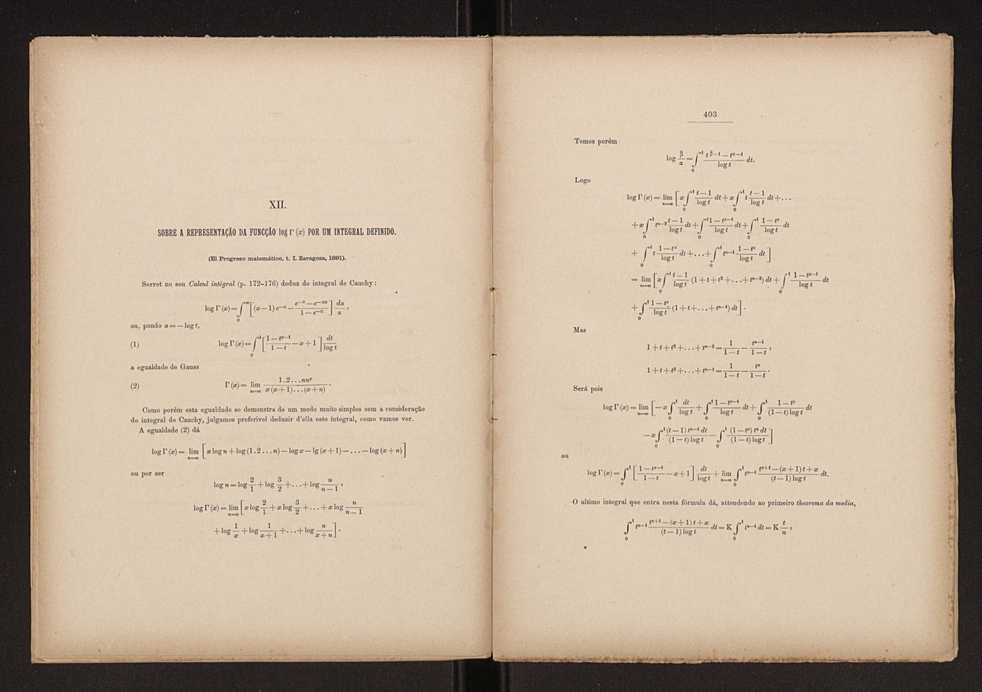 XII.
SOBRE A REPRESENTAÇÃO DA FUNCÇÃO log Γ (x) POR UM INTEGRAL DEFINIDO.
(El Progreso matemático, t. I. Zaragoza, 1891).
Serret no seu Calcul intégral (p. 172–176) deduz do integral de Cauchy:
log Γ (x) = ∫₀^∞ [(x — 1) e^{—α} — (e^{—α} — e^{—αx})/(1 — e^{—α})] dα/α,
ou, pondo α = — log t,
(1) log Γ (x) = ∫₀^1 [(1 — t^{x—1})/(1 — t) — x + 1] dt/log t
a egualdade de Gauss
(2) Γ (x) = lim_{n=∞} 1.2...nn^x/(x (x + 1)...(x + n)).
Como porém esta egualdade se demonstra de um modo muito simples sem a consideração
do integral de Cauchy, julgamos preferivel deduzir d'ella este integral, como vamos ver.
A egualdade (2) dá
log Γ (x) = lim_{n=∞} [x log n + log (1.2...n) — log x — lg (x + 1) — ... — log (x + n)]
ou por ser
log n = log 2/1 + log 3/2 + ... + log n/(n — 1),
log Γ (x) = lim_{n=∞} [x log 2/1 + x log 3/2 + ... + x log n/(n — 1)
+ log 1/x + log 1/(x + 1) + ... + log n/(x + n)].
403
Temos porém
log β/α = ∫₀^1 (t^{β—1} — t^{α—1})/log t dt.
Logo
log Γ (x) = lim_{n=∞} [x ∫₀^1 (t — 1)/log t dt + x ∫₀^1 t (t — 1)/log t dt + ...
+ x ∫₀^1 t^{n—2} (t — 1)/log t dt + ∫₀^1 (1 — t^{x—1})/log t dt + ∫₀^1 (1 — t^x)/log t dt
+ ∫₀^1 t (1 — t^x)/log t dt + ... + ∫₀^1 t^{n—1} (1 — t^x)/log t dt]
= lim_{n=∞} [x ∫₀^1 (t — 1)/log t (1 + t + t² + ... + t^{n—2}) dt + ∫₀^1 (1 — t^{x—1})/log t dt
+ ∫₀^1 (1 — t^x)/log t (1 + t + ... + t^{n—1}) dt].
Mas
1 + t + t² + ... + t^{n—2} = 1/(1 — t) — t^{n—1}/(1 — t),
1 + t + t² + ... + t^{n—1} = 1/(1 — t) — t^n/(1 — t).
Será pois
log Γ (x) = lim_{n=∞} [— x ∫₀^1 dt/log t + ∫₀^1 (1 — t^{x—1})/log t dt + ∫₀^1 (1 — t^x)/((1 — t) log t) dt
— x ∫₀^1 (t — 1) t^{n—1} dt/((1 — t) log t) — ∫₀^1 (1 — t^x) t^n dt/((1 — t) log t)]
ou
log Γ (x) = ∫₀^1 [(1 — t^{x—1})/(1 — t) — x + 1] dt/log t + lim_{n=∞} ∫₀^1 t^{n—1} (t^{x+1} — (x + 1) t + x)/((t — 1) log t) dt.
O ultimo integral que entra nesta fórmula dá, attendendo ao primeiro theorema da media,
∫₀^1 t^{n—1} (t^{x+1} — (x + 1) t + x)/((t — 1) log t) dt = K ∫₀^1 t^{n—1} dt = K t/n,